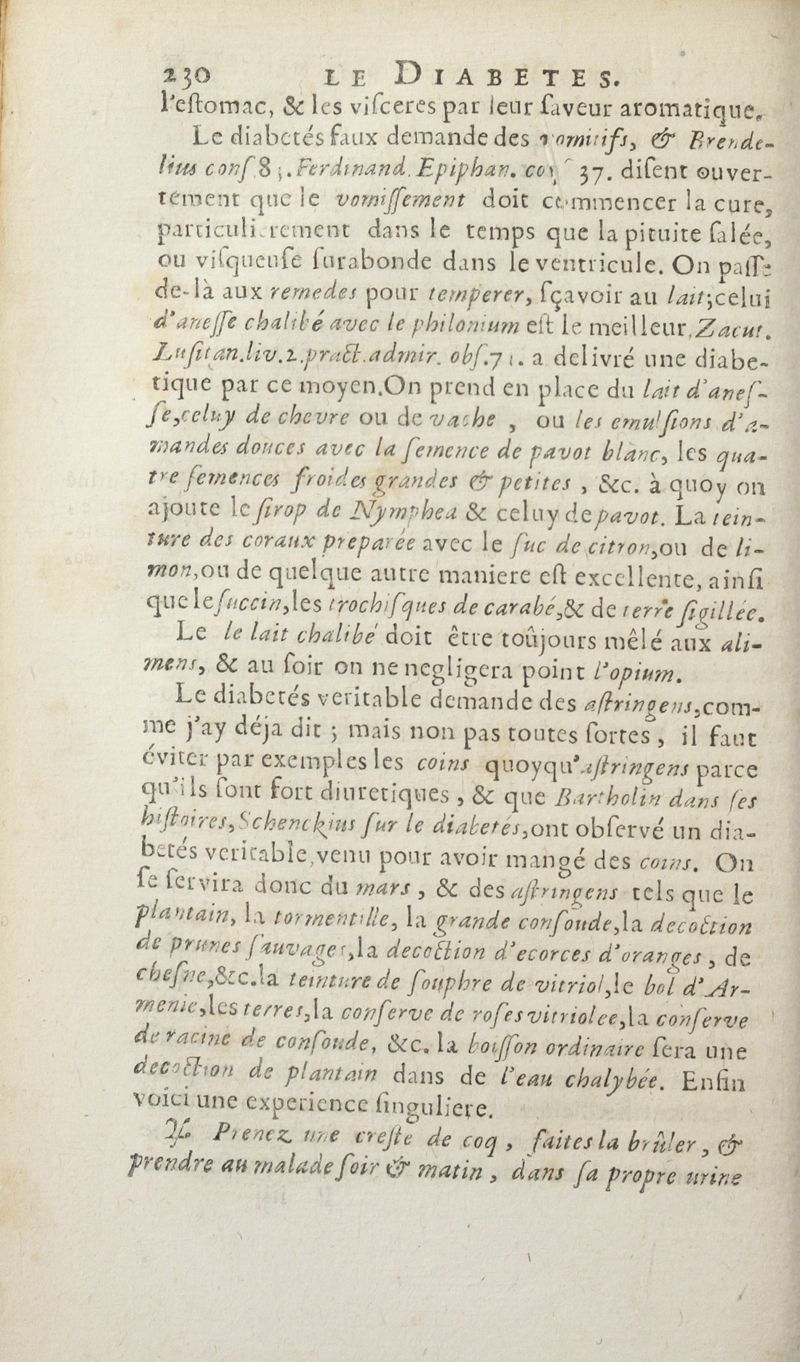 230 LE DIABETES.
l'eſtomac, & les viſceres par leur ſaveur aromatique.
Le diabetés faux demande des vomitifs, & Brende-
lius conſ. 83. Ferdinand. Epiphan. 37. diſent ouver-
tement que le vomiſſement doit commencer la cure,
particulierement dans le temps que la pituite ſalée,
ou viſqueuſe ſurabonde dans le ventricule. On paſſe
de-là aux remedes pour temperer, ſçavoir au lait; celui
d'aneſſe chalibé avec le philonium eſt le meilleur, Zacut.
Luſitan. liv. 2. pract. admir. obſ. 71. a delivré une diabe-
tique par ce moyen. On prend en place du lait d'aneſ-
ſe, celuy de chevre ou de vache , ou les emulſions d'a-
mandes douces avec la ſemence de pavot blanc, les qua-
tre ſemences froides grandes & petites , &c. à quoy on
ajoute le ſirop de Nymphea & celuy de pavot. La tein-
ture des coraux preparée avec le ſuc de citron, ou de li-
mon, ou de quelque autre maniere eſt excellente, ainſi
que le ſuccin, les trochiſques de carabé, & de terre ſigillée.
Le le lait chalibé doit être toûjours mêlé aux ali-
mens, & au ſoir on ne negligera point l'opium.
Le diabetés veritable demande des aſtringens, com-
me j'ay déja dit ; mais non pas toutes ſortes , il faut
éviter par exemples les coins quoyqu'aſtringens parce
qu'ils ſont fort diuretiques , & que Bartholin dans ſes
hiſtoires, Schenckius ſur le diabetés, ont obſervé un dia-
betés veritable, venu pour avoir mangé des coins. On
ſe ſervira donc du mars , & des aſtringens tels que le
plantain, la tormentille, la grande conſoude, la decoction
de prunes ſauvages, la decoction d'ecorces d'oranges , de
cheſne, &c. la teinture de ſouphre de vitriol, le bol d'Ar-
menie, les terres, la conſerve de roſes vitriolee, la conſerve
de racine de conſoude, &c. la boiſſon ordinaire ſera une
decoction de plantain dans de l'eau chalybée. Enfin
voici une experience ſinguliere.
℞ Prenez une creſte de coq , faites la brûler , &
prendre au malade ſoir & matin , dans ſa propre urine